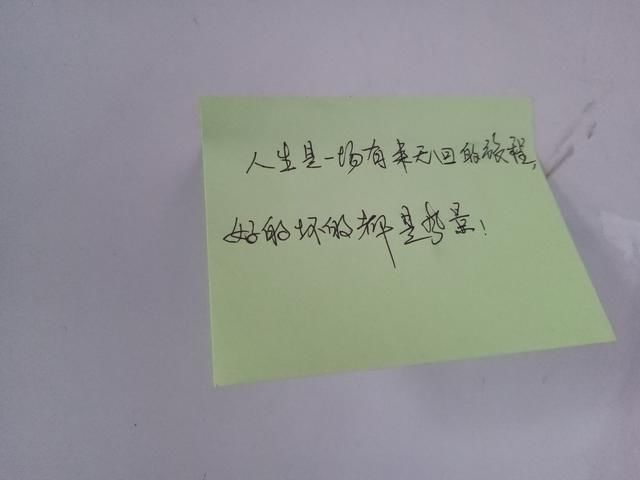 人生是一场有来无回的旅程,
好的坏的都是风景!